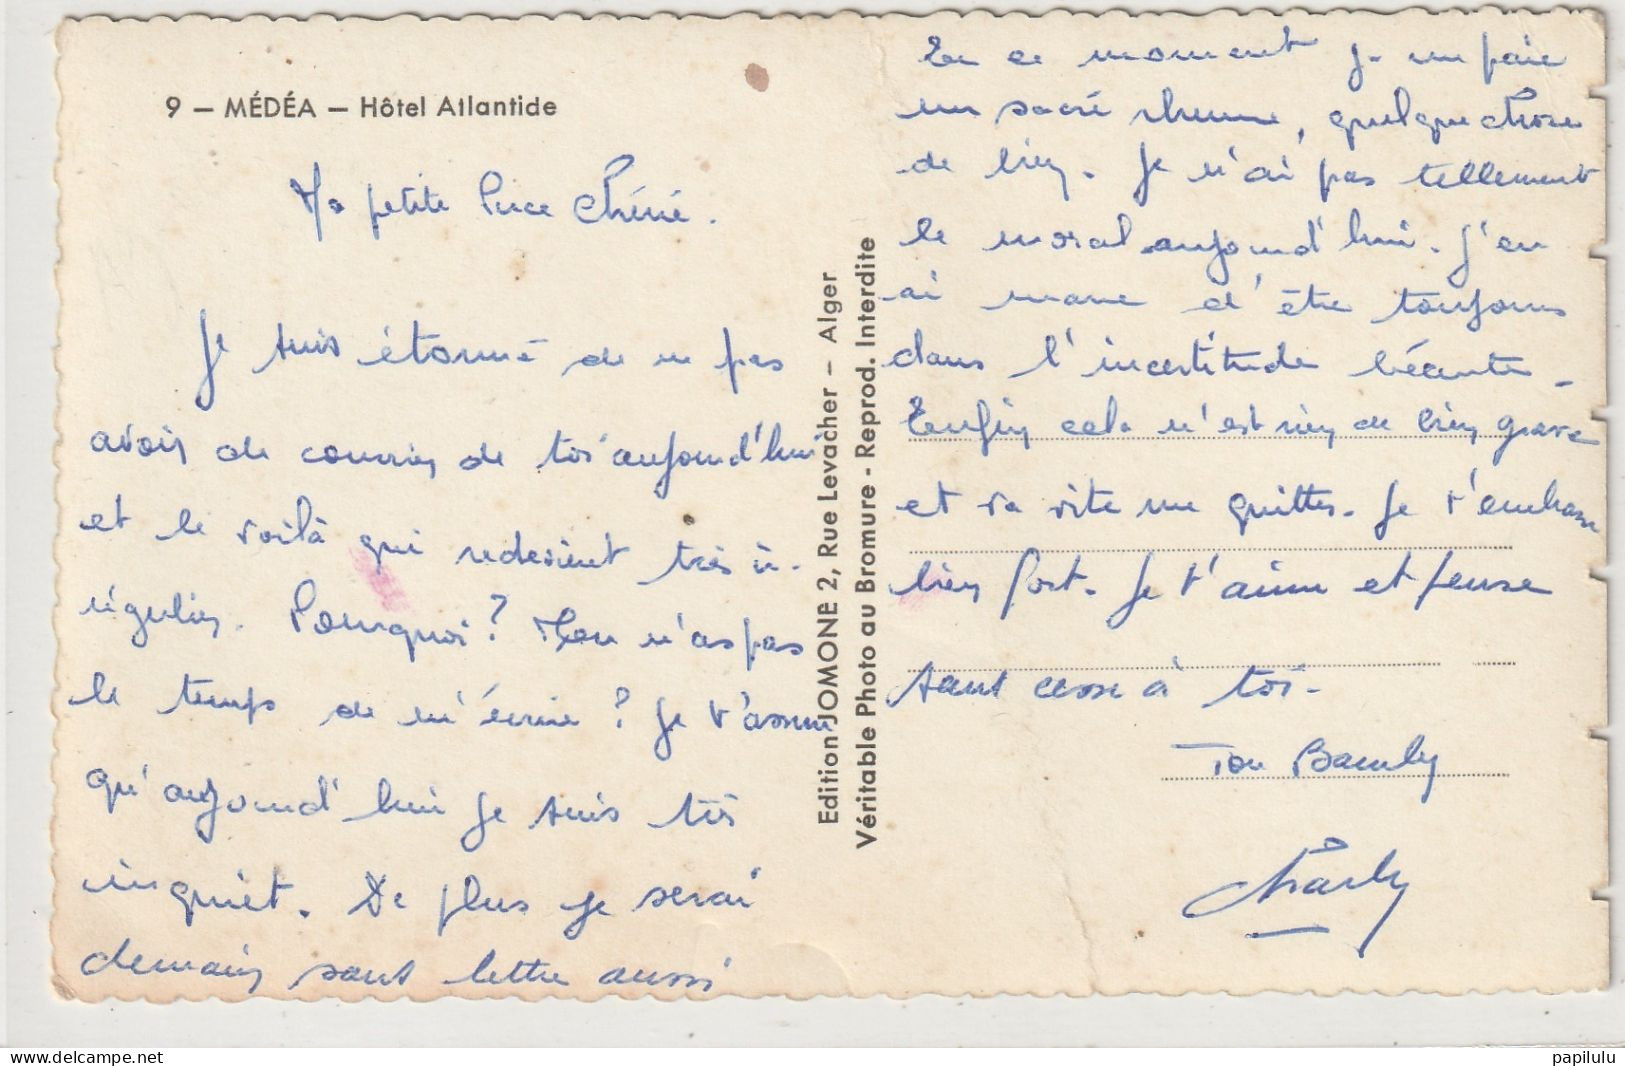 9 — MÉDÉA — Hôtel Atlantide
Ma petite Puce Chérie.
Je suis étonné de ne pas
avoir de courrier de toi aujourd'hui
et le voilà qui redevient très ir-
régulier. Pourquoi ? Mon n'as pas
le temps de m'écrire ? Je t'assure
qu'aujourd'hui je suis très
inquiet. De plus je serai
demain sans lettre aussi
Edition JOMONE 2, Rue Levacher — Alger
Véritable Photo au Bromure - Reprod. Interdite
En ce moment je me paie
un sacré rhume, quelque chose
de bien. Je n'ai pas tellement
le moral aujourd'hui. J'en
ai marre d'être toujours
dans l'incertitude
Enfin cela n'est rien de bien grave
et va vite me quitter. Je t'embrasse
bien fort. Je t'aime et pense
sans cesse à toi.
Ton
Charly
delcampe.net
papilulu